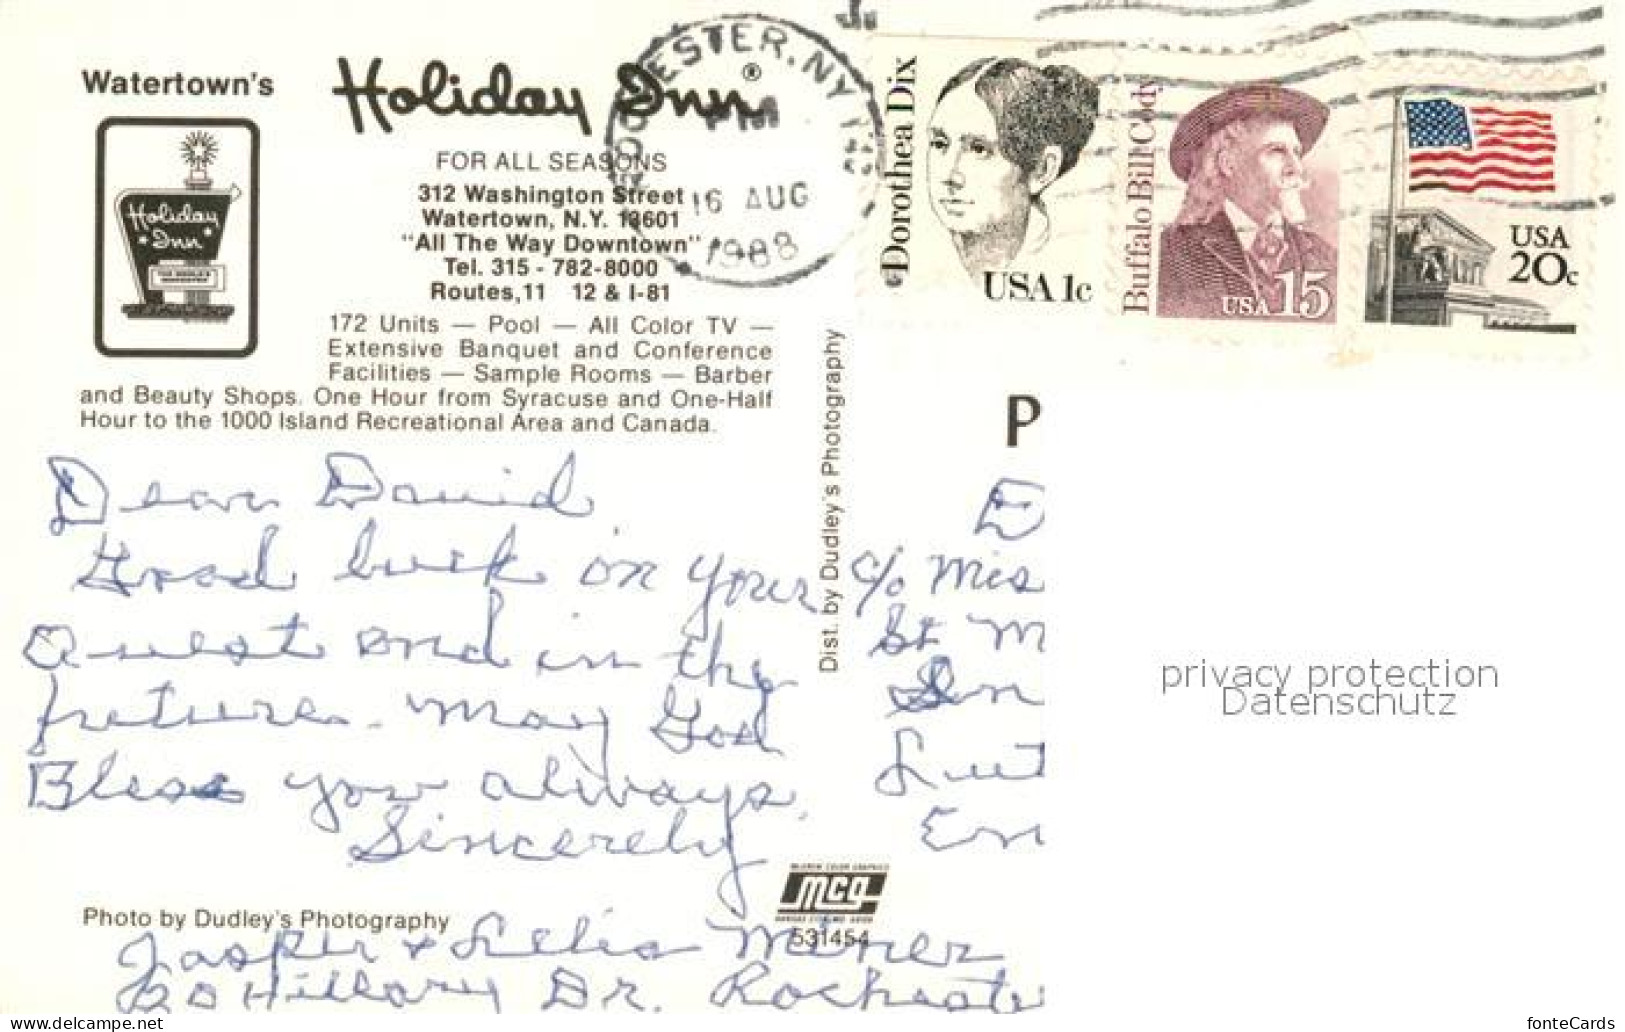 Watertown's
Holiday Inn ®
FOR ALL SEASONS
312 Washington Street
Watertown, N.Y. 13601
"All The Way Downtown"
Tel. 315 - 782-8000
Routes, 11 12 & I-81
172 Units — Pool — All Color TV —
Extensive Banquet and Conference
Facilities — Sample Rooms — Barber
and Beauty Shops. One Hour from Syracuse and One-Half
Hour to the 1000 Island Recreational Area and Canada.
Holiday
Inn
ROCHESTER, NY
PM
16 AUG
1988
Dorothea Dix
USA 1c
Buffalo Bill Cody
USA 15
USA
20c
Dear David
Good luck on your
Quest and in the
future. May God
Bless you always.
Sincerely
Jasper & Lelia Miner
20 Hillary Dr. Rochester
Dist. by Dudley's Photography
P
E
c/o Mis
St M
Lut
En
privacy protection
Datenschutz
Photo by Dudley's Photography
mcg
531454
https://www.delcampe.net
fonteCards